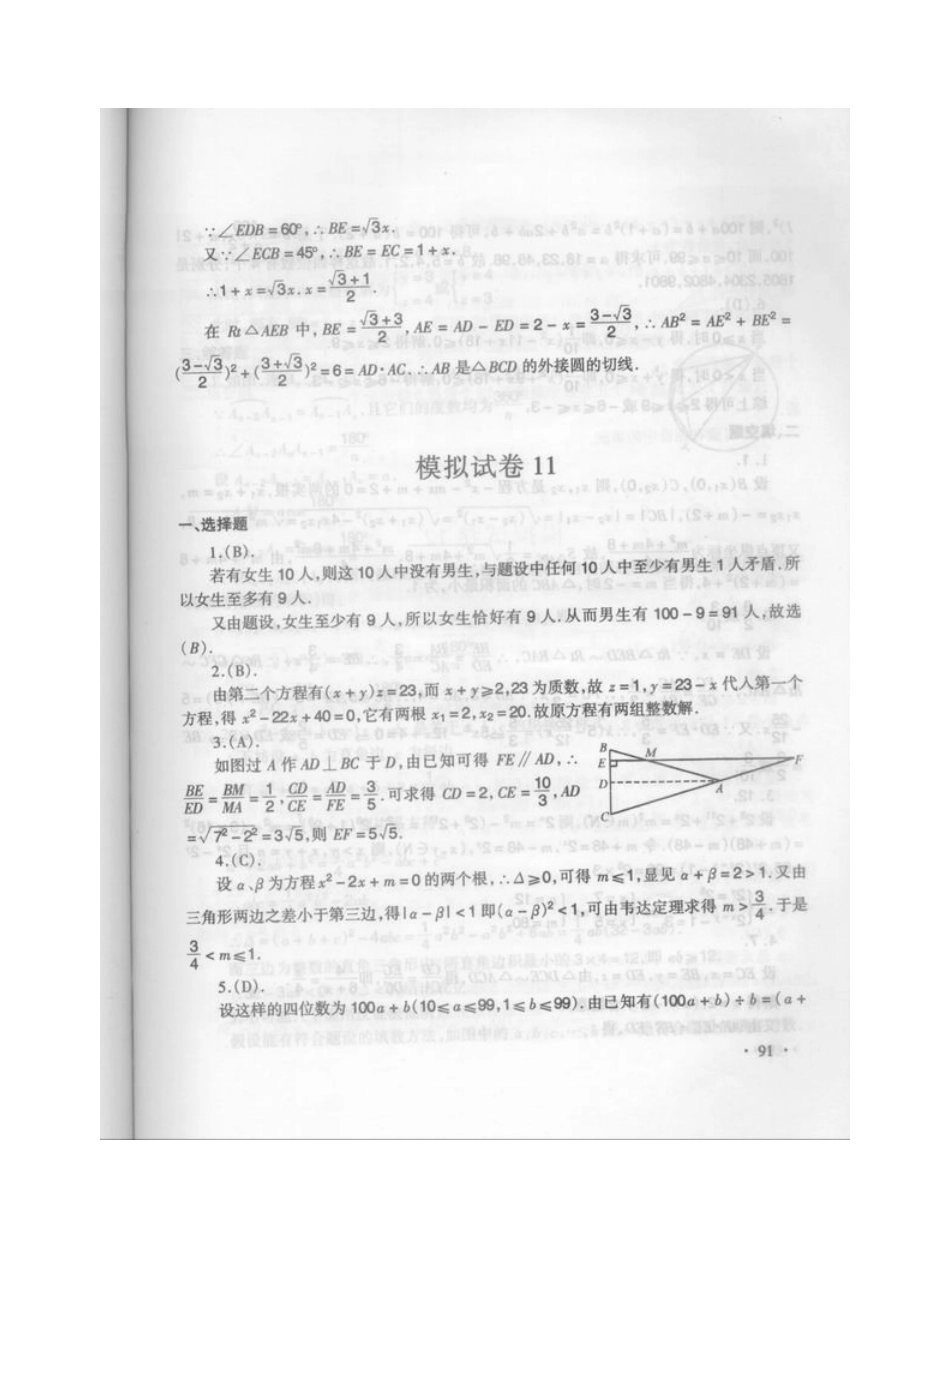 ∵∠EDB=60°,∴BE=√3x.
又∵∠ECB=45°,∴BE=EC=1+x.
∴1+x=√3x.x=(√3+1)/2.
在 Rt△AEB 中,BE=(√3+3)/2,AE=AD-ED=2-x=(3-√3)/2,∴AB²=AE²+BE²=
((3-√3)/2)²+((3+√3)/2)²=6=AD·AC.∴AB 是△BCD 的外接圆的切线.
模拟试卷 11
一、选择题
1.(B).
若有女生 10 人,则这 10 人中没有男生,与题设中任何 10 人中至少有男生 1 人矛盾.所
以女生至多有 9 人.
又由题设,女生至少有 9 人,所以女生恰好有 9 人.从而男生有 100-9=91 人,故选
(B).
2.(B).
由第二个方程有(x+y)z=23,而 x+y≥2,23 为质数,故 z=1,y=23-x 代人第一个
方程,得 x²-22x+40=0,它有两根 x₁=2,x₂=20.故原方程有两组整数解.
3.(A).
如图过 A 作 AD⊥BC 于 D,由已知可得 FE∥AD,∴
BE/ED=BM/MA=1/2,CD/CE=AD/FE=3/5.可求得 CD=2,CE=10/3,AD
=√(7²-2²)=3√5,则 EF=5√5.
B M
E F
D A
C
4.(C).
设 α、β 为方程 x²-2x+m=0 的两个根,∴△≥0,可得 m≤1,显见 α+β=2>1.又由
三角形两边之差小于第三边,得|α-β|<1 即(α-β)²<1,可由韦达定理求得 m>3/4.于是
3/4<m≤1.
5.(D).
设这样的四位数为 100a+b(10≤a≤99,1≤b≤99).由已知有(100a+b)÷b=(a+
·91·